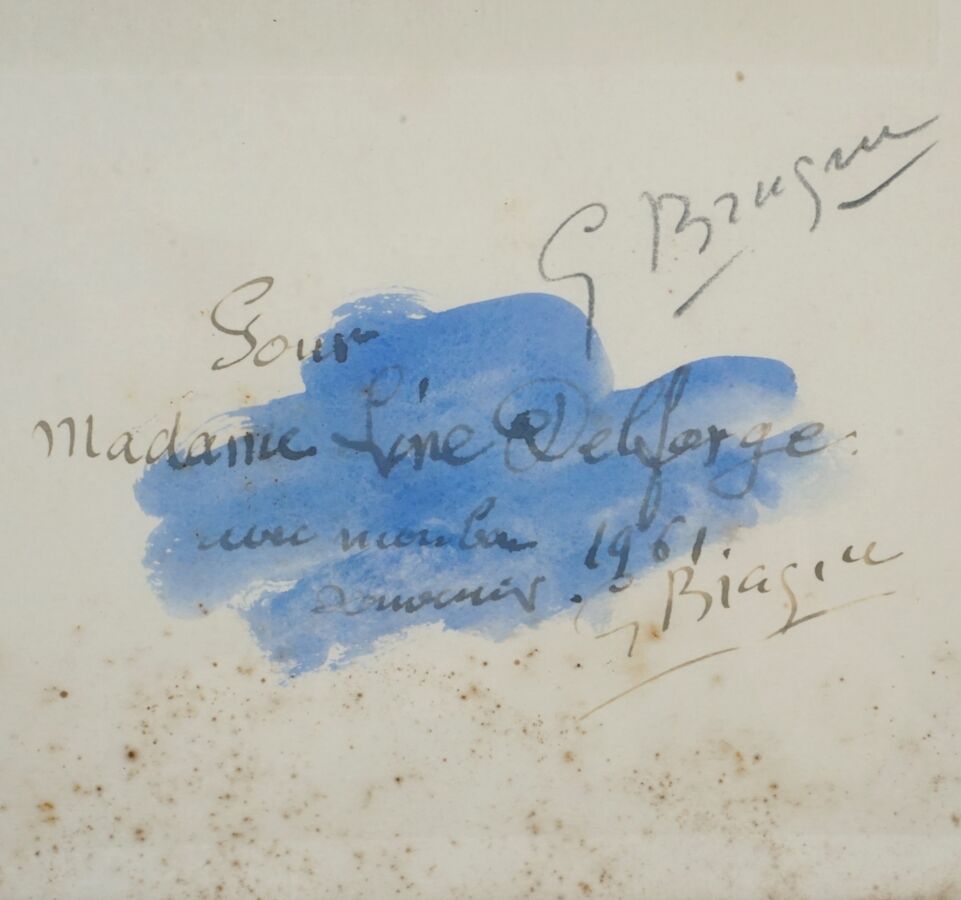 G Braque
Pour
Madame Line Delforge.
avec mon bon
souvenir. 1961
G Braque